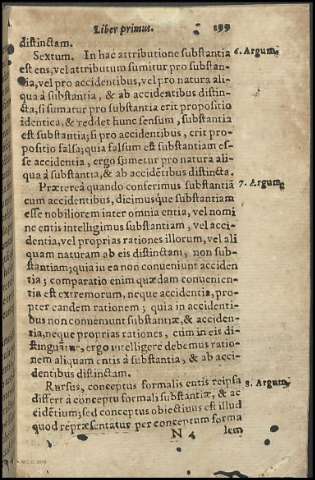 Liber primus. 199
distinctam.
Sextum. In hac attributione substantia 6. Argum.
est ens, vel attributum sumitur pro substan-
tia, vel pro accidentibus, vel pro natura ali-
qua à substantia, & ab accidentibus distin-
cta, si sumatur pro substantia erit propositio
identica, & reddet hunc sensum, substantia
est substantia; si pro accidentibus, erit pro-
positio falsa; quia falsum est substantiam es-
se accidentia, ergo sumetur pro natura ali-
qua à substantia, & ab accidētibus distincta.
Præterea quando conferimus substantiā 7. Argum.
cum accidentibus, dicimusque substantiam
esse nobiliorem inter omnia entia, vel nomi
ne entis intelligimus substantiam, vel acci-
dentia, vel proprias rationes illorum, vel ali
quam naturam ab eis distinctam, non sub-
stantiam; quia in ea non conveniunt acciden
tia; comparatio enim quædam convenien-
tia est extremorum, neque accidentia, pro-
pter eandem rationem; quia in accidenti-
bus non conveniunt substantiæ, & acciden-
tia, neque proprias rationes, cùm in eis di-
stinguātur, ergo intelligere debemus ratio-
nem aliquam entis à substantia, & ab acci-
dentibus distinctam.
Rursus, conceptus formalis entis reipsa 8. Argum.
differt à conceptu formali substantiæ, & ac
cidētium; sed conceptus obiectivus est illud
quod repræsentatur per conceptum forma
N 4 lem